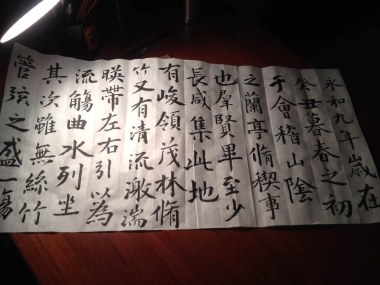 永和九年歲在
癸丑暮春之初
于會稽山陰
之蘭亭脩禊事
也羣賢畢至少
長咸集此地
有峻領茂林脩
竹又有清流激湍
暎帶左右引以為
流觴曲水列坐
其次雖無絲竹
管弦之盛一觴